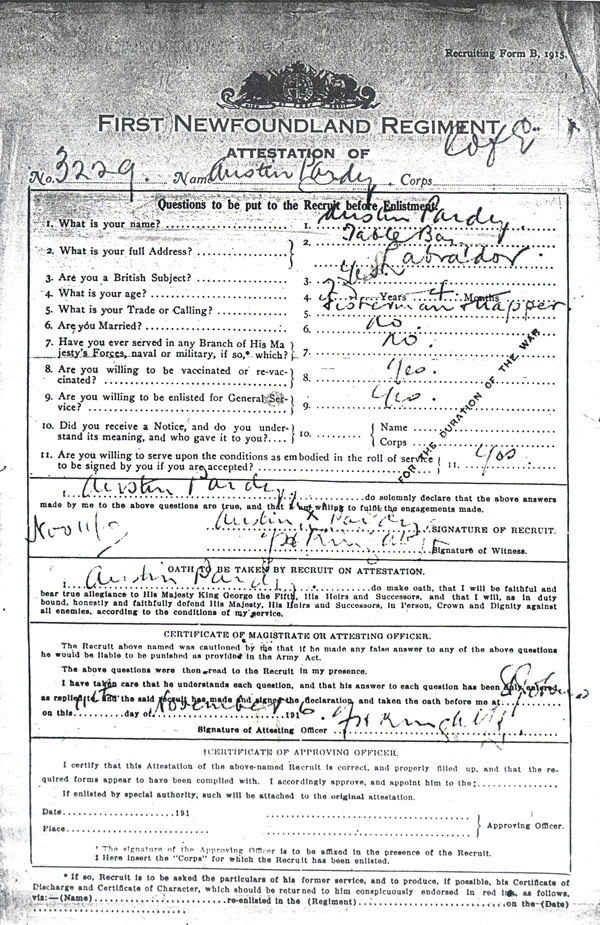 Recruiting Form B, 1915.
FIRST NEWFOUNDLAND REGIMENT
C of E
ATTESTATION OF
No. 3229. Name Austin Pardy. Corps
Questions to be put to the Recruit before Enlistment.
1. What is your name? 1. Austin Pardy.
2. What is your full Address? 2. Table Bay
Labrador.
3. Are you a British Subject? 3. Yes.
4. What is your age? 4. Years 4 Months
5. What is your Trade or Calling? 5. Fisherman trapper.
6. Are you Married? 6. No.
7. Have you ever served in any Branch of His Majesty's Forces, naval or military, if so,* which? 7. No.
8. Are you willing to be vaccinated or re-vaccinated? 8. Yes.
9. Are you willing to be enlisted for General Service? 9. Yes.
FOR THE DURATION OF THE WAR
10. Did you receive a Notice, and do you understand its meaning, and who gave it to you? 10. Name
Corps
11. Are you willing to serve upon the conditions as embodied in the roll of service to be signed by you if you are accepted? 11. Yes
I, Austin Pardy, do solemnly declare that the above answers
made by me to the above questions are true, and that I am willing to fulfil the engagements made.
Austin X Pardy SIGNATURE OF RECRUIT.
Signature of Witness.
OATH TO BE TAKEN BY RECRUIT ON ATTESTATION.
I, Austin Pardy, do make oath, that I will be faithful and
bear true allegiance to His Majesty King George the Fifth, His Heirs and Successors, and that I will, as in duty
bound, honestly and faithfully defend His Majesty, His Heirs and Successors, in Person, Crown and Dignity against
all enemies, according to the conditions of my service.
CERTIFICATE OF MAGISTRATE OR ATTESTING OFFICER.
The Recruit above named was cautioned by me that if he made any false answer to any of the above questions
he would be liable to be punished as provided in the Army Act.
The above questions were then read to the Recruit in my presence.
I have taken care that he understands each question, and that his answer to each question has been duly entered
as replied to, and the said recruit has made and signed the declaration and taken the oath before me at
on this day of November 1916.
Signature of Attesting Officer
‡CERTIFICATE OF APPROVING OFFICER.
I certify that this Attestation of the above-named Recruit is correct, and properly filled up, and that the re-
quired forms appear to have been complied with. I accordingly approve, and appoint him to the‡
If enlisted by special authority, such will be attached to the original attestation.
Date 191
Place Approving Officer.
† The signature of the Approving Officer is to be affixed in the presence of the Recruit.
‡ Here insert the "Corps" for which the Recruit has been enlisted.
* If so, Recruit is to be asked the particulars of his former service, and to produce, if possible, his Certificate of
Discharge and Certificate of Character, which should be returned to him conspicuously endorsed in red ink, as follows,
viz:—(Name) re-enlisted in the (Regiment) on the (Date)